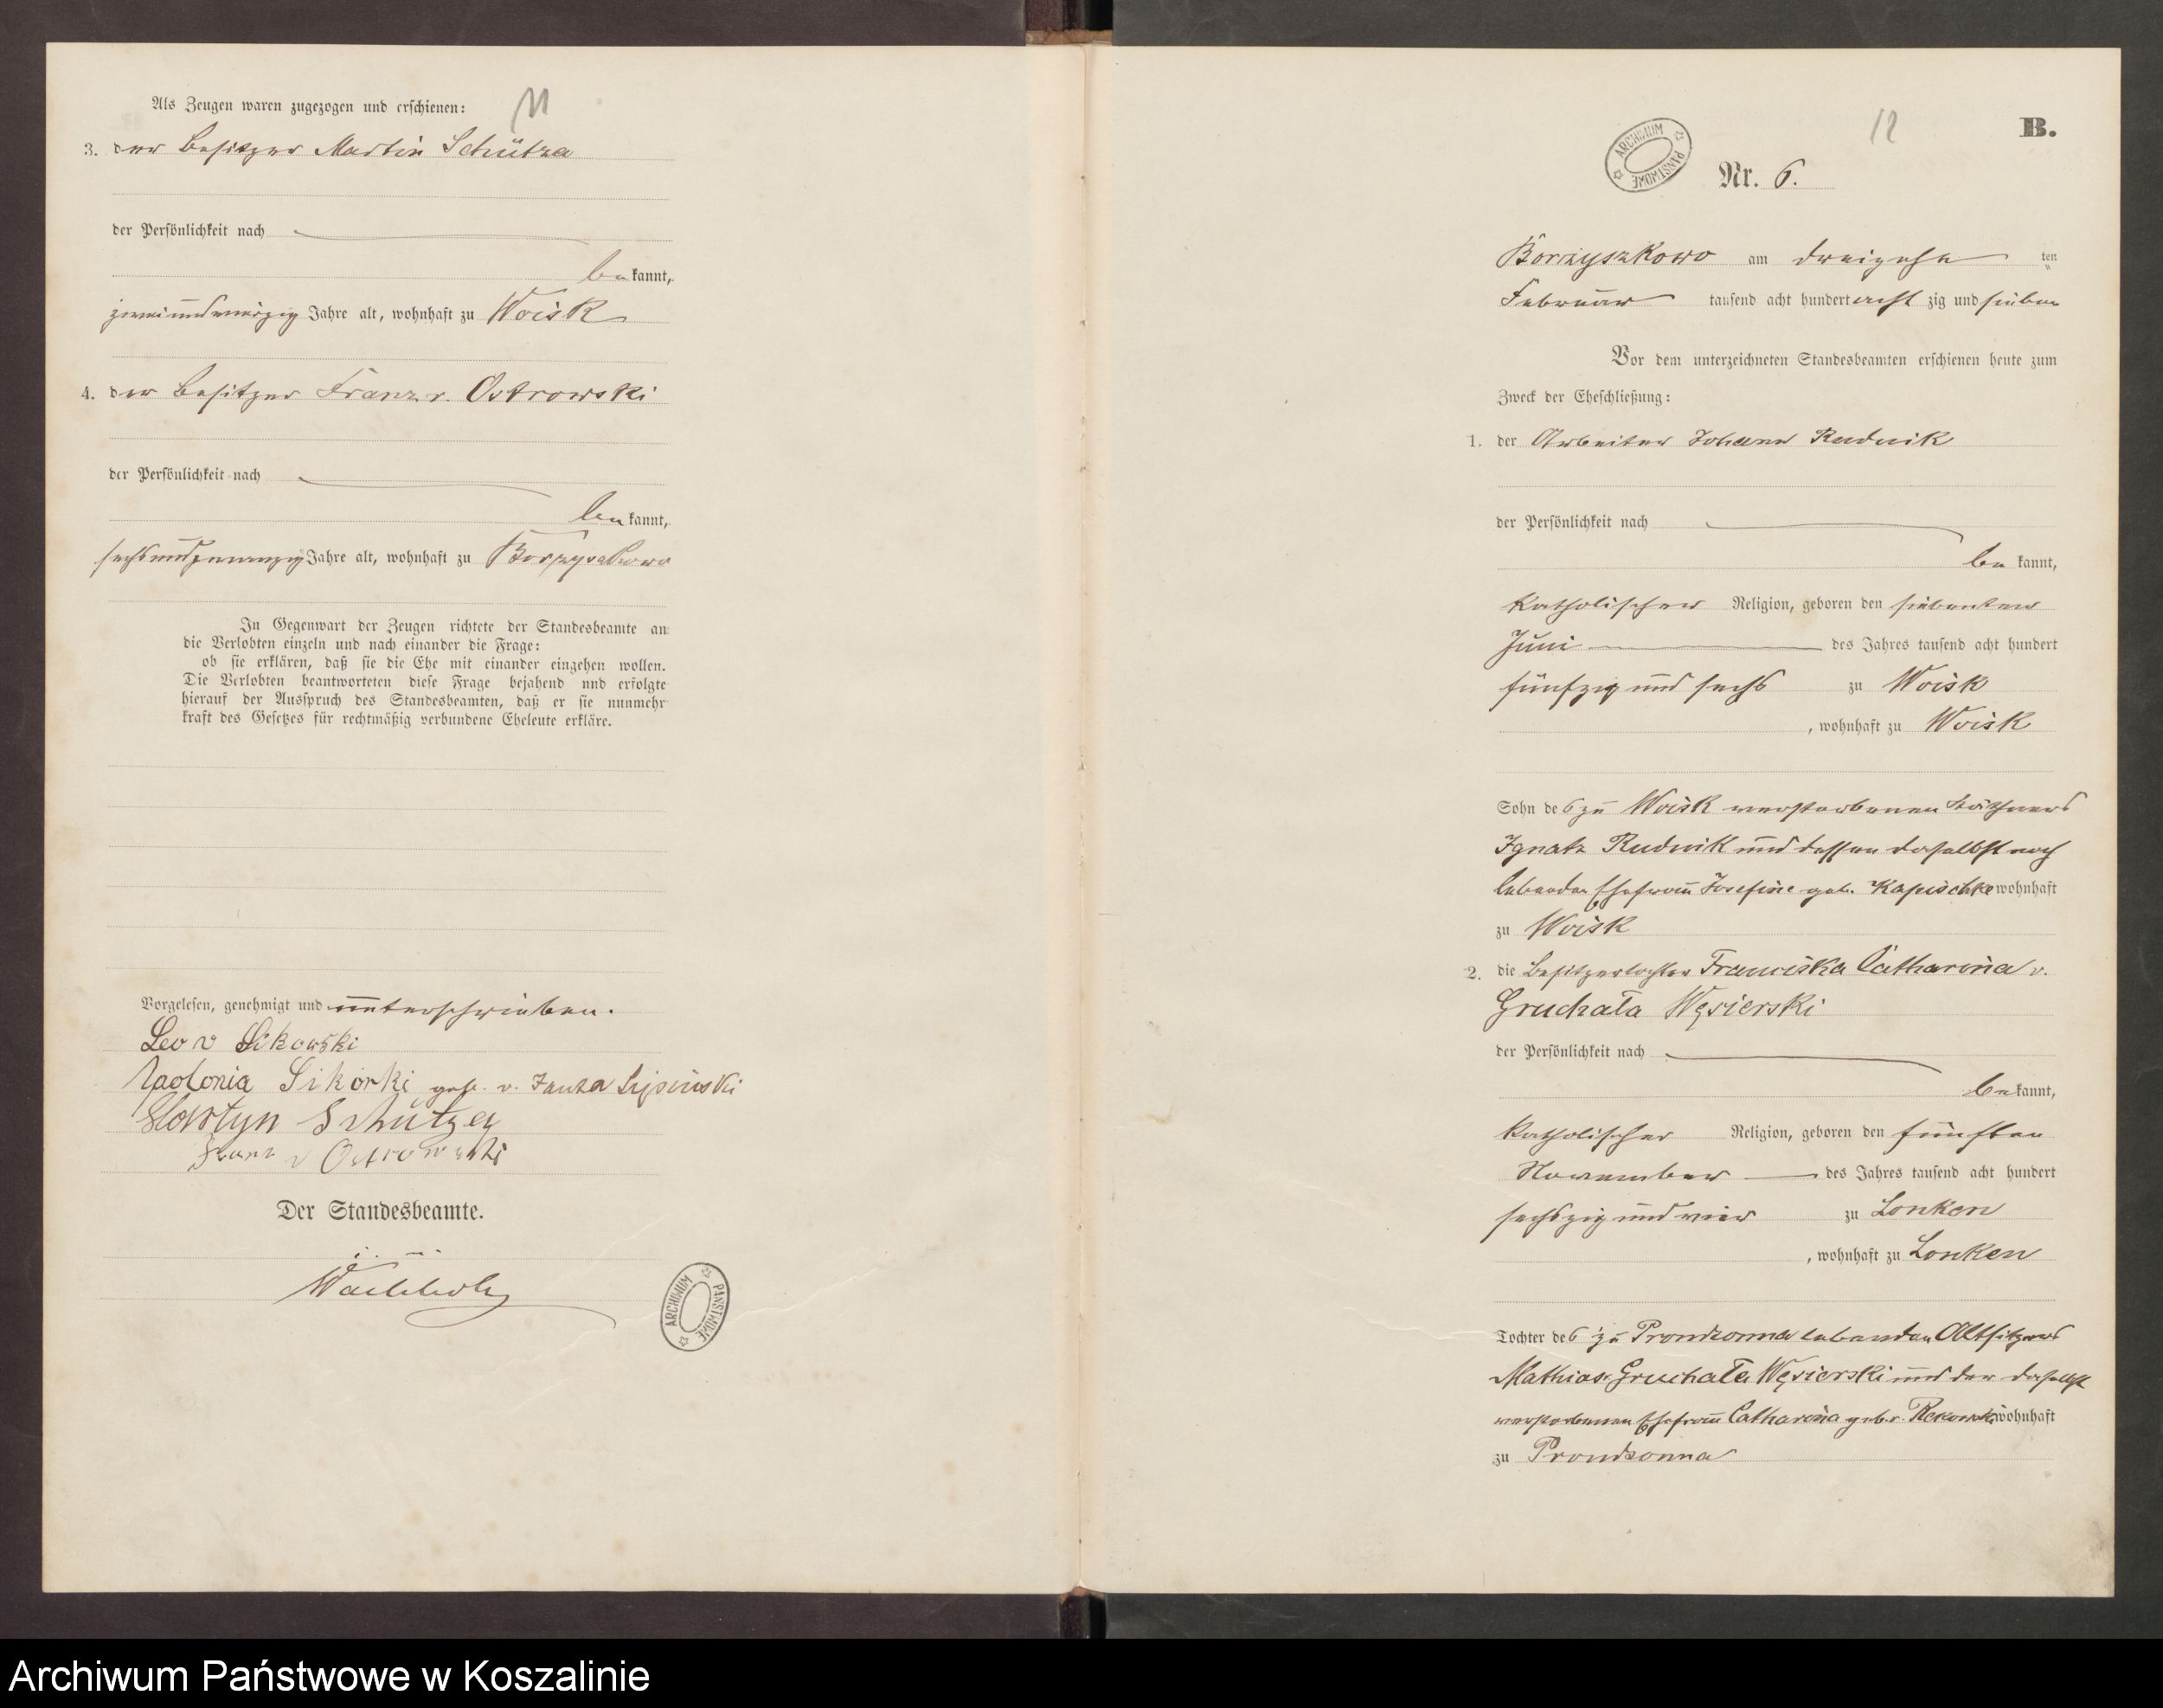 Als Zeugen waren zugezogen und erschienen:
11
3. der Besitzer Martin Schütza
der Persönlichkeit nach
bekannt,
zweiundvierzig Jahre alt, wohnhaft zu Woisk
4. der Besitzer Franz v. Ostrowski
der Persönlichkeit nach
bekannt,
sechsundzwanzig Jahre alt, wohnhaft zu Borzyszkowo
In Gegenwart der Zeugen richtete der Standesbeamte an
die Verlobten einzeln und nach einander die Frage:
ob sie erklären, daß sie die Ehe mit einander eingehen wollen.
Die Verlobten beantworteten diese Frage bejahend und erfolgte
hierauf der Ausspruch des Standesbeamten, daß er sie nunmehr
kraft des Gesetzes für rechtmäßig verbundene Eheleute erkläre.
Vorgelesen, genehmigt und unterschrieben.
Leo v
geb. v.
Martyn Schützer
Franz v Ostrowski
Der Standesbeamte.
ARCHIWUM PAŃSTWOWE
12
B.
ARCHIWUM PAŃSTWOWE
Nr. 6.
Borzyszkowo am dreizehn ten
Februar tausend acht hundert acht zig und sieben
Vor dem unterzeichneten Standesbeamten erschienen heute zum
Zweck der Eheschließung:
1. der Arbeiter Johann Rudnik
der Persönlichkeit nach
bekannt,
katholischer Religion, geboren den siebenten
Juni des Jahres tausend acht hundert
fünfzig und sechs zu Woisk
, wohnhaft zu Woisk
Sohn des zu Woisk verstorbenen Käthners
Ignatz Rudnik und dessen daselbst noch
lebenden Ehefrau Josefine geb. Kapischke wohnhaft
zu Woisk
2. die Besitzertochter Franciska Catharina v.
Gruchała Węsierski
der Persönlichkeit nach
bekannt,
katholischer Religion, geboren den fünften
November des Jahres tausend acht hundert
sechszig und vier zu Lonken
, wohnhaft zu Lonken
Tochter des zu Prondzonna lebenden Altsitzers
Mathias Gruchała Węsierski und der daselbst
verstorbenen Ehefrau Catharina geb. v. Rekowski wohnhaft
zu Prondzonna
Archiwum Państwowe w Koszalinie